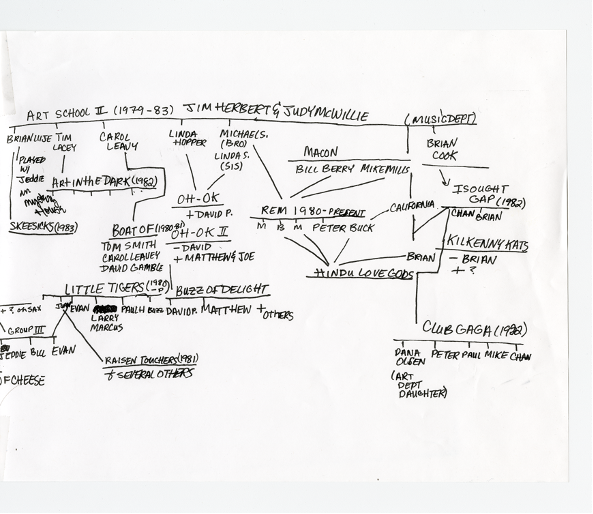 ART SCHOOL II (1979-83) JIM HERBERT & JUDY MCWILLIE (MUSIC DEPT)
BRIAN LUJE TIM LACEY CAROL LEAVY LINDA HOPPER MICHAEL S. (BRO) LINDA S. (SIS)
BRIAN COOK
PLAYED W/ JEDDIE
MACON
BILL BERRY MIKE MILLS
ART IN THE DARK (1982)
SKEESICKS (1983)
OH-OK
+ DAVID P.
REM 1980-PRESENT
M B M PETER BUCK
CALIFORNIA
ISOUGHT GAP (1982)
CHAN BRIAN
BOAT OF
TOM SMITH
CAROL LEAVEY
DAVID GAMBLE
OH-OK II
- DAVID
+ MATTHEW & JOE
BRIAN
KILKENNY KATS
- BRIAN
+ ?
HINDU LOVE GODS
LITTLE TIGERS
EVAN LARRY MARCUS PAUL H BUZZ
BUZZ OF DELIGHT
DAVID P. MATTHEW + OTHERS
+ ? ON SAX
GROUP III
JEDDIE BILL EVAN
OF CHEESE
RAISEN TOUCHERS (1981)
+ SEVERAL OTHERS
CLUB GAGA (1982)
DANA OLSEN PETER PAUL MIKE CHAN
(ART DEPT DAUGHTER)